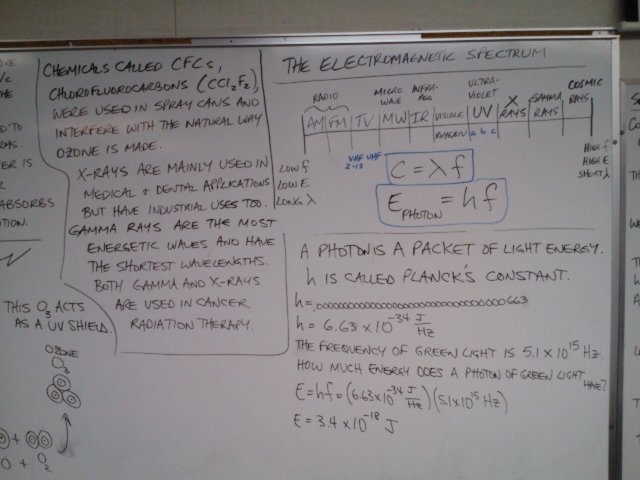 /c
HE
ED TO
RMS
ER IS
R
ABSORBS
TION.
THIS O3 ACTS
AS A UV SHIELD.
OZONE
O3
+
O + O2
CHEMICALS CALLED CFCs,
CHLOROFLUOROCARBONS (CCl2F2),
WERE USED IN SPRAY CANS AND
INTERFERE WITH THE NATURAL WAY
OZONE IS MADE.
X-RAYS ARE MAINLY USED IN
MEDICAL & DENTAL APPLICATIONS
BUT HAVE INDUSTRIAL USES TOO.
GAMMA RAYS ARE THE MOST
ENERGETIC WAVES AND HAVE
THE SHORTEST WAVELENGTHS.
BOTH GAMMA AND X-RAYS
ARE USED IN CANCER
RADIATION THERAPY.
THE ELECTROMAGNETIC SPECTRUM
RADIO MICRO WAVE INFRA-RED ULTRA-VIOLET COSMIC RAYS
AM FM TV MW IR VISIBLE UV X RAYS GAMMA RAYS
ROYGBIV a b c
VHF UHF
2-13
LOW f
LOW E
LONG λ
HIGH f
HIGH E
SHORT λ
C = λ f
E PHOTON = h f
A PHOTON IS A PACKET OF LIGHT ENERGY.
h IS CALLED PLANCK'S CONSTANT.
h = 6.63 × 10^-34 J/Hz
THE FREQUENCY OF GREEN LIGHT IS 5.1 × 10^15 Hz.
HOW MUCH ENERGY DOES A PHOTON OF GREEN LIGHT HAVE?
E = hf = (6.63×10^-34 J/Hz)(5.1×10^15 Hz)
E = 3.4 × 10^-18 J